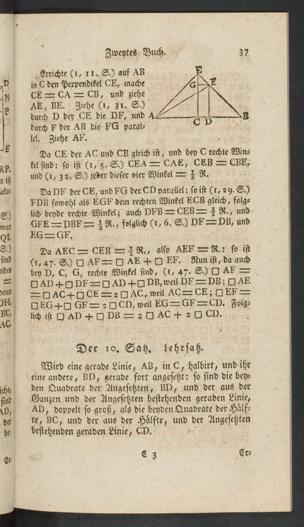 Zweytes Buch. 37
Errichte (1, 11. S.) auf AB
in C den Perpendikel CE, mache
CE = CA = CB, und ziehe
AE, BE. Ziehe (1, 31. S.)
durch D der CE die DF, und
durch F der AB die FG paral-
lel. Ziehe AF.
E
G F
A C D B
Da CE der AC und CB gleich ist, und bey C rechte Win-
kel sind: so ist (1, 5. S.) CEA = CAE, CEB = CBE,
und (1, 32. S.) jeder dieser vier Winkel = ½ R.
Da DF der CE, und FG der CD parallel: so ist (1, 29. S.)
FDB sowohl als EGF dem rechten Winkel ECB gleich, folg-
lich beyde rechte Winkel; auch DFB = CEB = ½ R., und
GFE = DBF = ½ R., folglich (1, 6. S.) DF = DB, und
EG = GF.
Da AEC = CEB = ½ R., also AEF = R.: so ist
(1, 47. S.) □ AF = □ AE + □ EF. Nun ist, da auch
bey D, C, G, rechte Winkel sind, (1, 47. S.) □ AF =
□ AD + □ DF = □ AD + □ DB, weil DF = DB; □ AE
= □ AC + □ CE = 2 □ AC, weil AC = CE; □ EF =
□ EG + □ GF = 2 □ CD, weil EG = GF = CD. Folg-
lich ist □ AD + □ DB = 2 □ AC + 2 □ CD.
Der 10. Satz. Lehrsatz.
Wird eine gerade Linie, AB, in C, halbirt, und ihr
eine andere, BD, gerade fort angesetzt: so sind die bey-
den Quadrate der Angesetzten, BD, und der aus der
Ganzen und der Angesetzten bestehenden geraden Linie,
AD, doppelt so groß, als die beyden Quadrate der Hälf-
te, BC, und der aus der Hälfte, und der Angesetzten
bestehenden geraden Linie, CD.
C 3 Er-